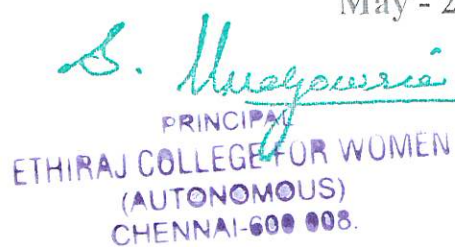 May - 2
S.
PRINCIPAL
ETHIRAJ COLLEGE FOR WOMEN
(AUTONOMOUS)
CHENNAI-600 008.